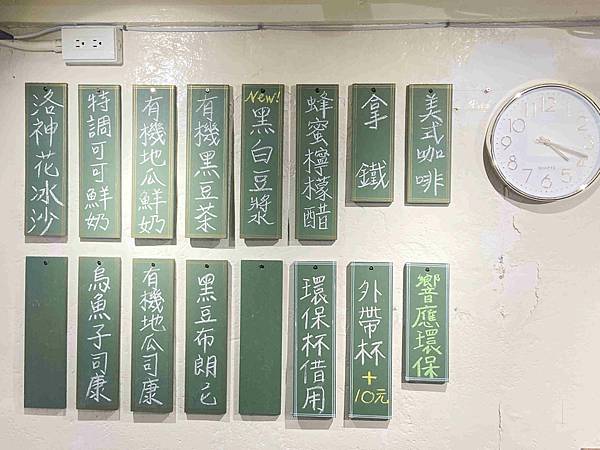 美式咖啡
拿鐵
蜂蜜檸檬醋
New!
黑白豆漿
有機黑豆茶
有機地瓜鮮奶
特調可可鮮奶
洛神花冰沙
響應環保
外帶杯
+
10元
環保杯借用
黑豆布朗尼
有機地瓜司康
烏魚子司康
12
1
2
3
4
5
6
7
8
9
10
11